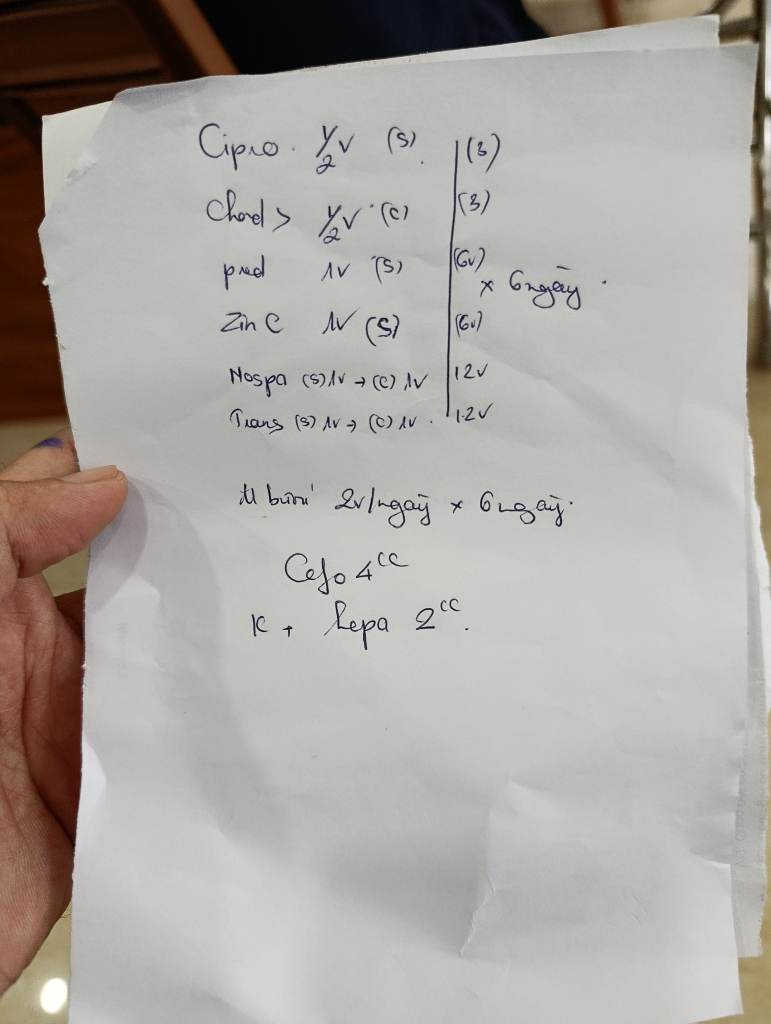 Cipro. 1/2 v (S). (3)
1/2 v (C) (3)
pred 1v (S) (6v)
x 6 ngày.
Zin C 1v (S) (6v)
Nospa (S) 1v → (C) 1v 12v
Trans (S) 1v → (C) 1v. 12v
2v/ngày x 6 ngày.
Cefo 4cc
K + hepa 2cc.